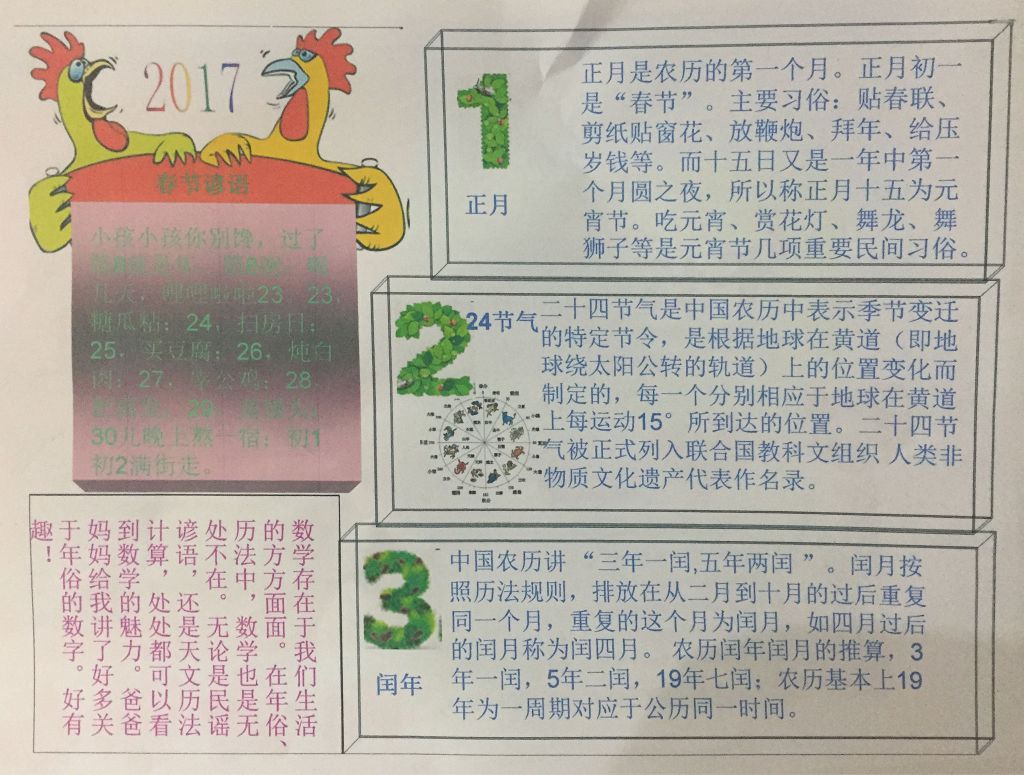 2017
春节谚语
小孩小孩你别馋，过了
几天，哩哩啦啦23　23，
糖瓜粘；24，扫房日；
25，买豆腐；26，炖白
肉；27，宰公鸡；28，
30儿晚上熬一宿；初1
初2满街走。
数学存在于我们生活
的方方面面。在年俗、
历法中，数学也是无
处不在。无论是民谣
谚语，还是天文历法
计算，处处都可以看
到数学的魅力。爸爸
妈妈给我讲了好多关
于年俗的数字。好有
趣！
1
正月
正月是农历的第一个月。正月初一
是“春节”。主要习俗：贴春联、
剪纸贴窗花、放鞭炮、拜年、给压
岁钱等。而十五日又是一年中第一
个月圆之夜，所以称正月十五为元
宵节。吃元宵、赏花灯、舞龙、舞
狮子等是元宵节几项重要民间习俗。
2
24节气
二十四节气是中国农历中表示季节变迁
的特定节令，是根据地球在黄道（即地
球绕太阳公转的轨道）上的位置变化而
制定的，每一个分别相应于地球在黄道
上每运动15°所到达的位置。二十四节
气被正式列入联合国教科文组织 人类非
物质文化遗产代表作名录。
3
闰年
中国农历讲 “三年一闰,五年两闰 ”。闰月按
照历法规则，排放在从二月到十月的过后重复
同一个月，重复的这个月为闰月，如四月过后
的闰月称为闰四月。 农历闰年闰月的推算，3
年一闰，5年二闰，19年七闰；农历基本上19
年为一周期对应于公历同一时间。